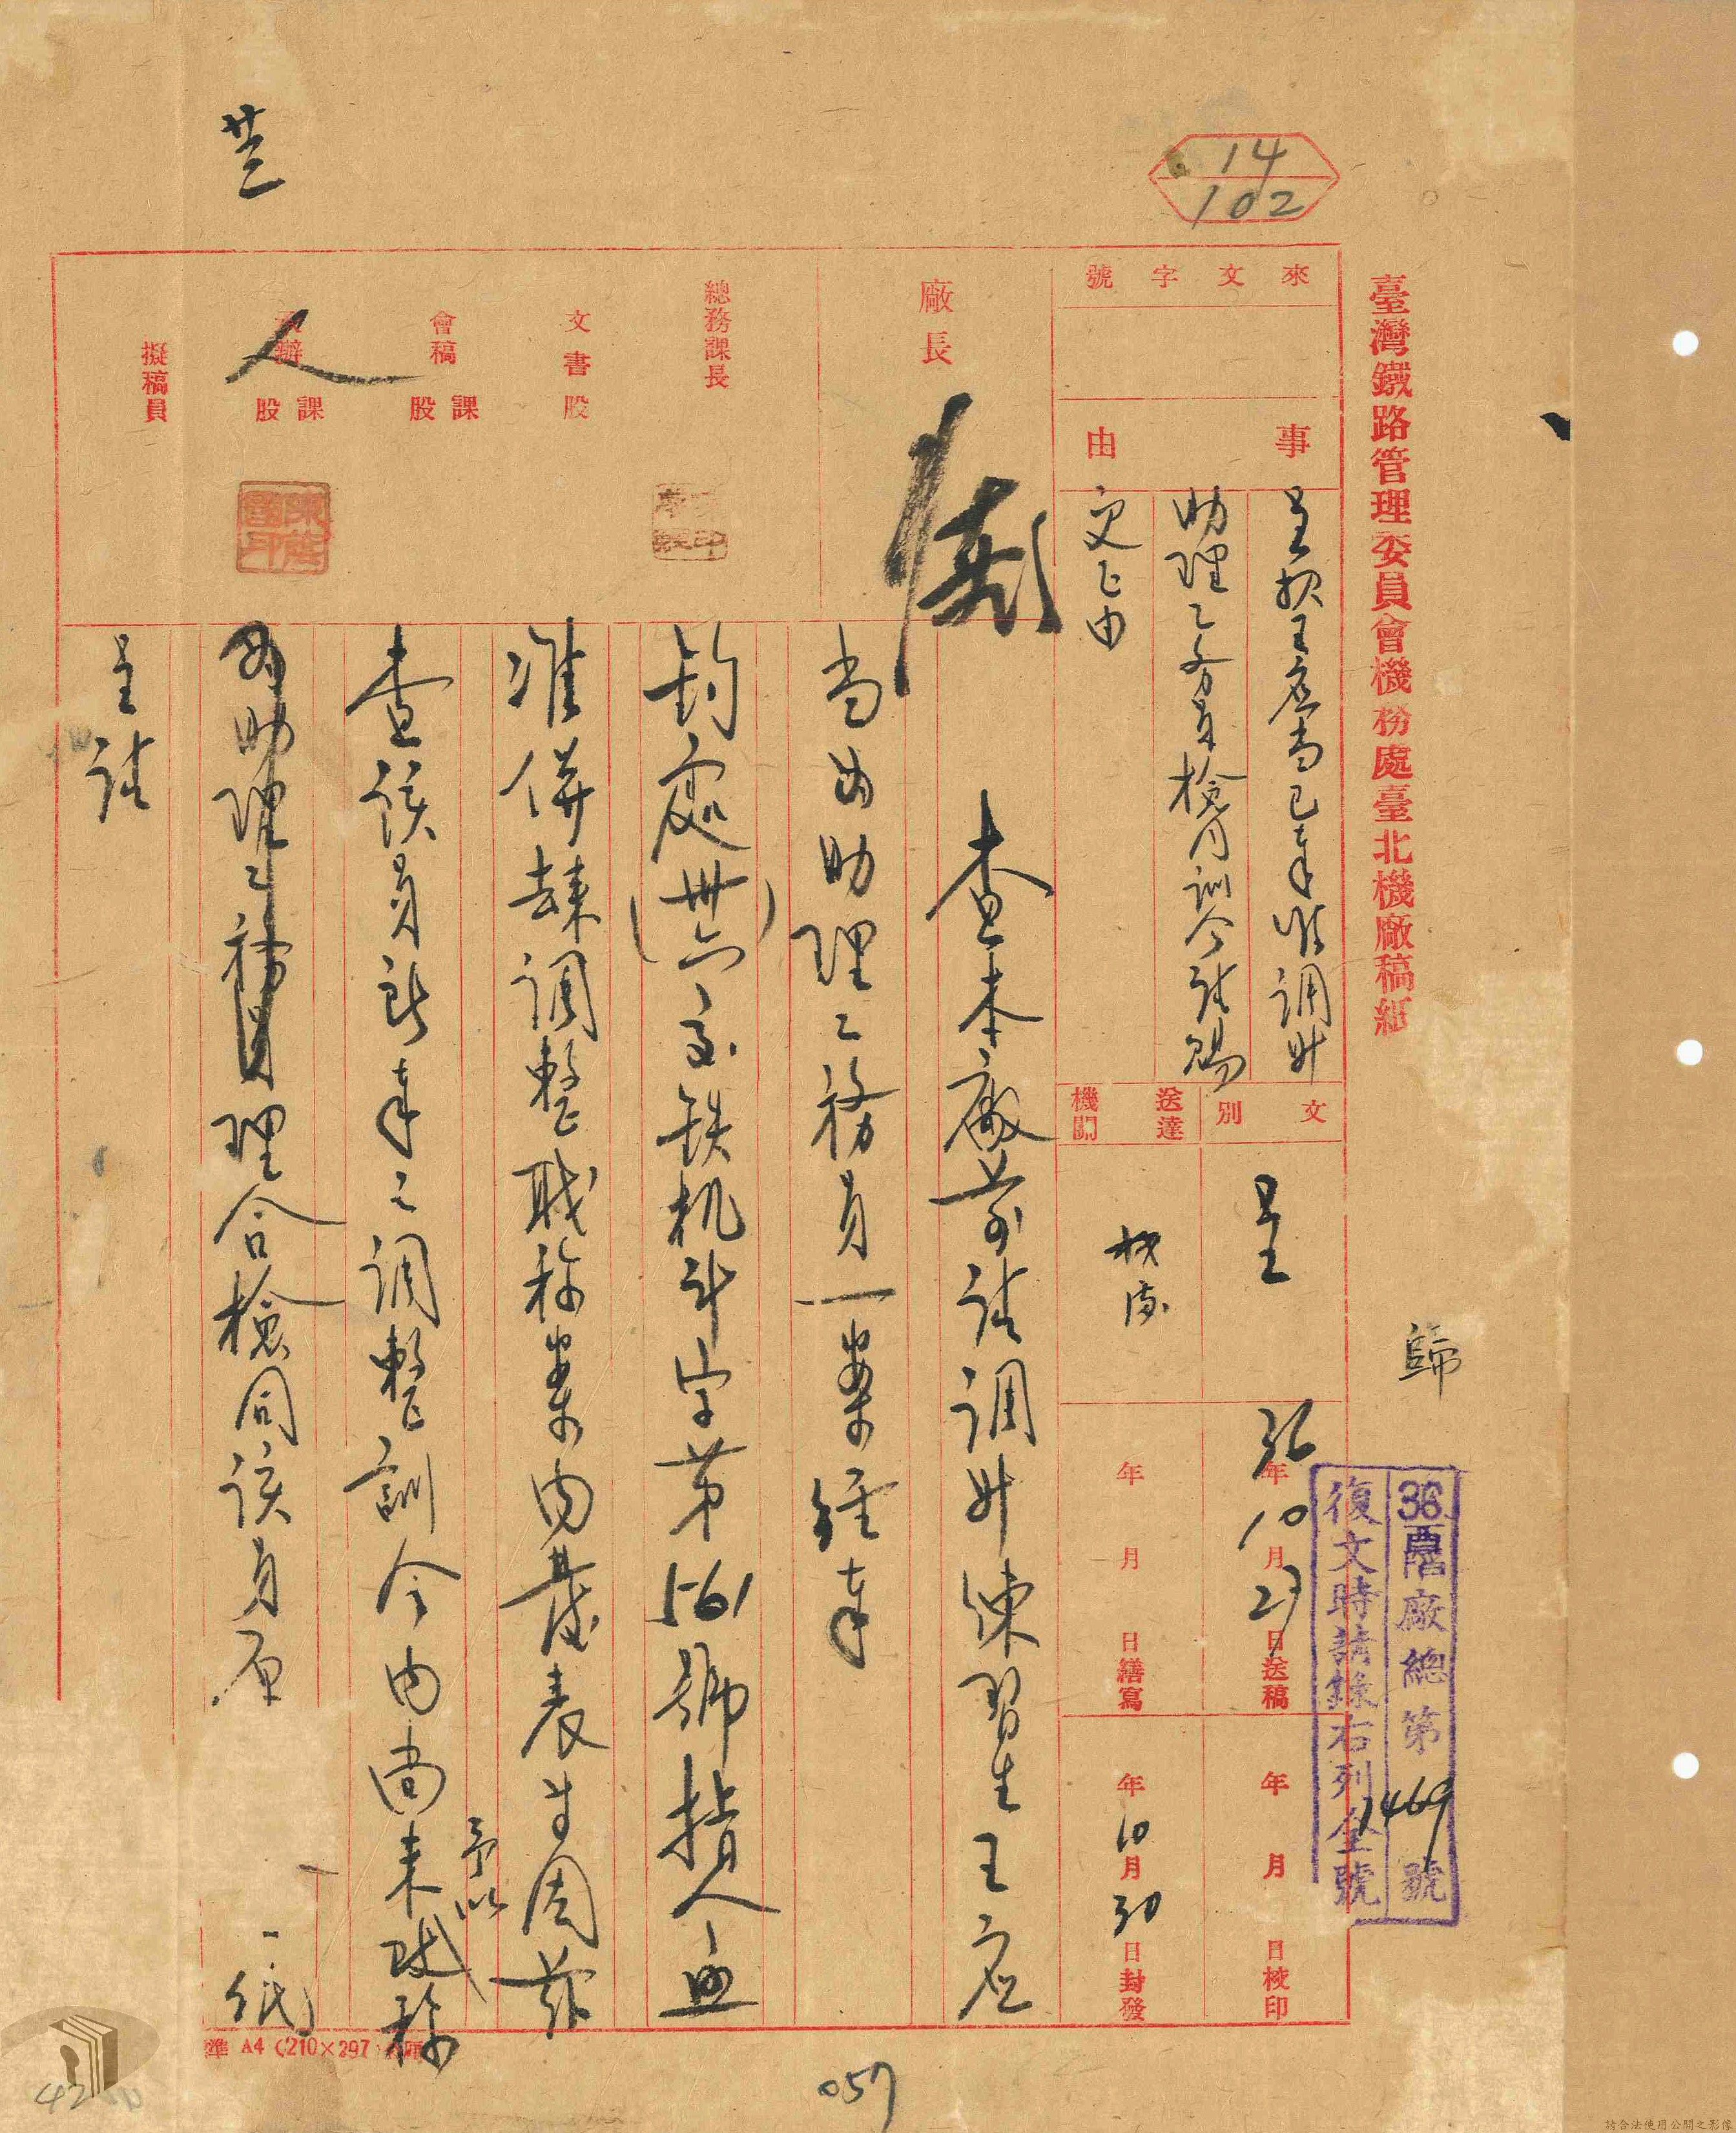 臺灣鐵路管理委員會機務處臺北機廠稿紙
14
102
來文字號
事由
呈報王應當已奉准調升
助理工務員檢同訓令請賜
更正由
文別
呈
送達機關
機處
歸
36年10月27日送稿
年月日繕寫
年月日校印
年10月30日封發
36酉陷廠總第1469號
復文時請錄右列全號
廠長
總務課長
文書股
會稿課股
承辦課股
人
擬稿員
查本廠前請調升練習生王應
當為助理工務員一案經奉
鈞處(卅六)亥鐵机斗字第1561號指人
准併案調整職称案內發表等因茲
查該員新奉之調整訓令內尚未予以改称
為助理工務員理合檢同該員原
一紙
呈請
準 A4 (210×297)
057
42
請合法使用公開之影像